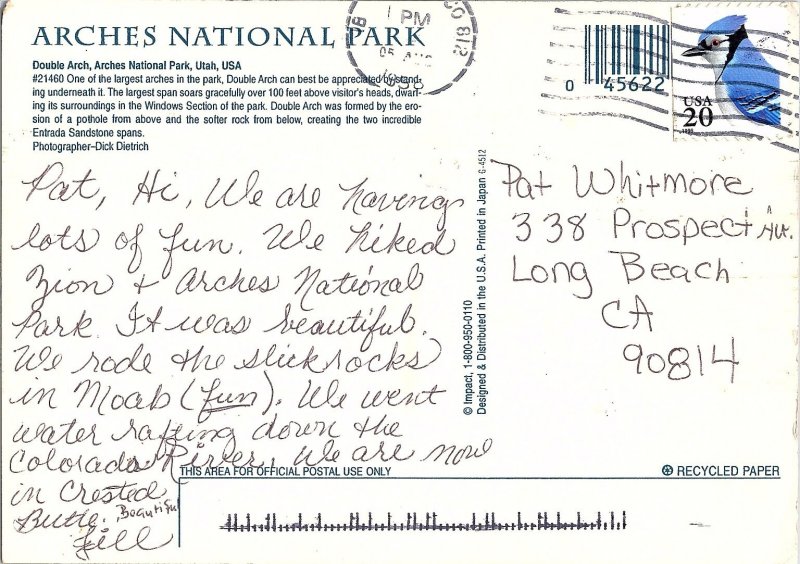 ARCHES NATIONAL PARK
Double Arch, Arches National Park, Utah, USA
#21460 One of the largest arches in the park, Double Arch can best be appreciated by stand-
ing underneath it. The largest span soars gracefully over 100 feet above visitor's heads, dwarf-
ing its surroundings in the Windows Section of the park. Double Arch was formed by the ero-
sion of a pothole from above and the softer rock from below, creating the two incredible
Entrada Sandstone spans.
Photographer–Dick Dietrich
PM
05 AUG
CO 812
0 45622
USA
20
Pat, Hi, We are having
lots of fun. We hiked
Zion + Arches National
Park. It was beautiful.
We rode the slickrocks
in Moab (fun). We went
water rafting down the
Colorado River. We are now
in Crested
Butte. Beautiful
Jill
© Impact, 1-800-950-0110
Designed & Distributed in the U.S.A. Printed in Japan C-4512
Pat Whitmore
338 Prospect Ave.
Long Beach
CA
90814
THIS AREA FOR OFFICIAL POSTAL USE ONLY
RECYCLED PAPER